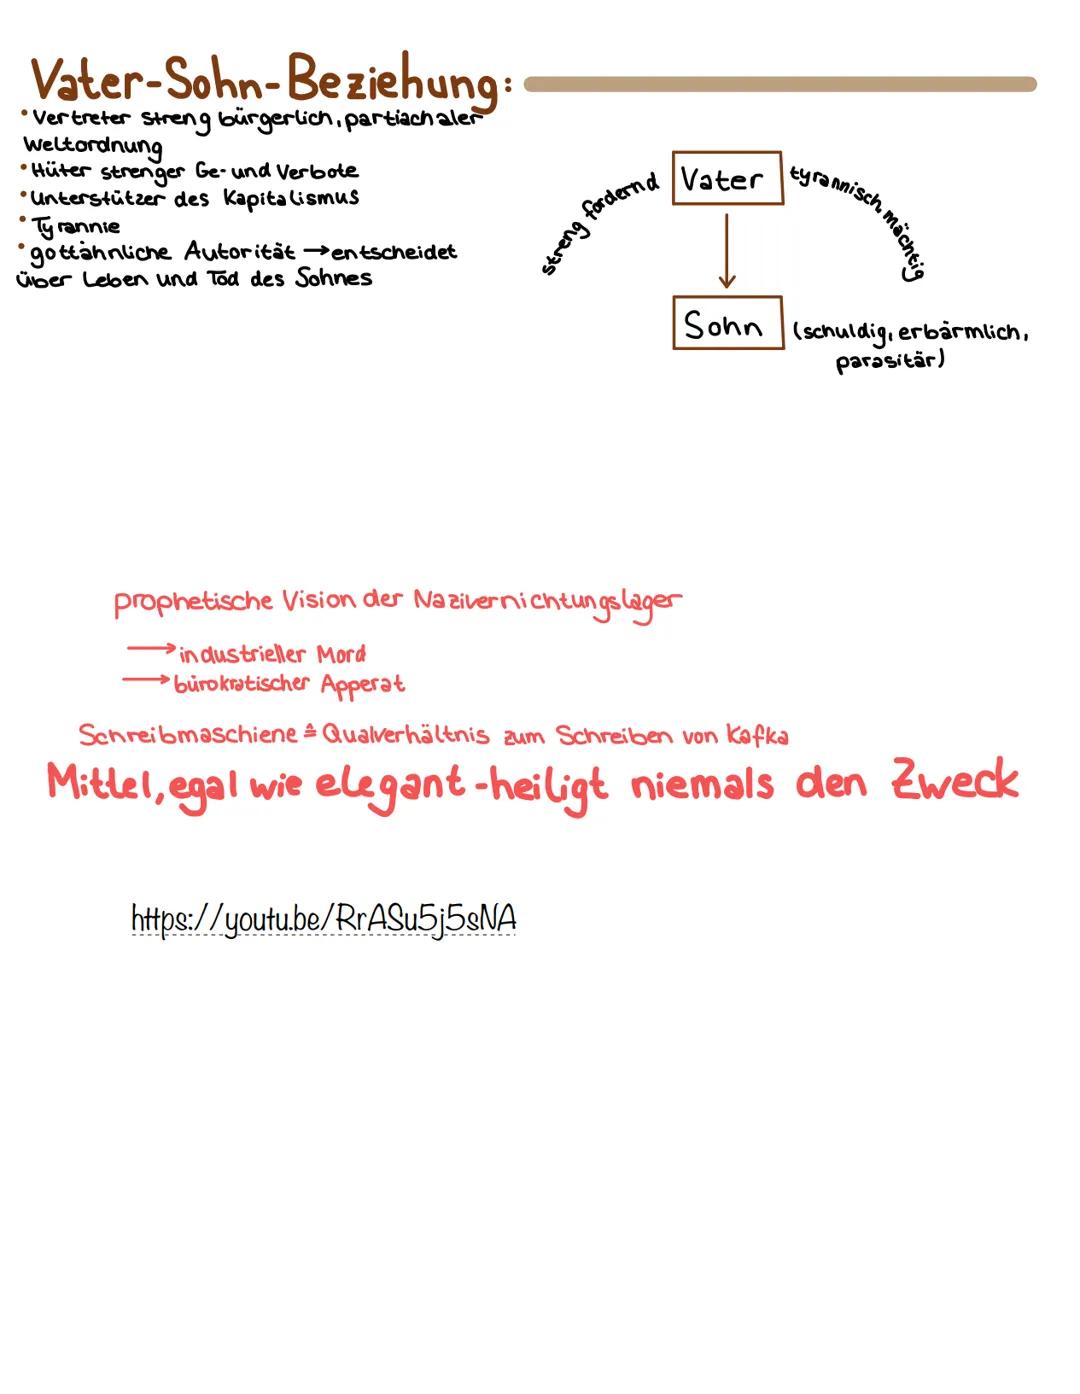 Vater-Sohn-Beziehung:
• Vertreter streng bürgerlich, partiachaler
Weltordnung
• Hüter strenger Ge- und Verbote
• Unterstützer des Kapitalismus
• Tyrannie
• gottähnliche Autorität → entscheidet
über Leben und Tod des Sohnes
streng fordernd
Vater
tyrannisch, mächtig
Sohn
(schuldig, erbärmlich,
parasitär)
prophetische Vision der Nazivernichtungslager
→ industrieller Mord
→ bürokratischer Apperat
Schreibmaschiene ≙ Qualverhältnis zum Schreiben von Kafka
Mittel, egal wie elegant - heiligt niemals den Zweck
https://youtu.be/RrASu5j5sNA